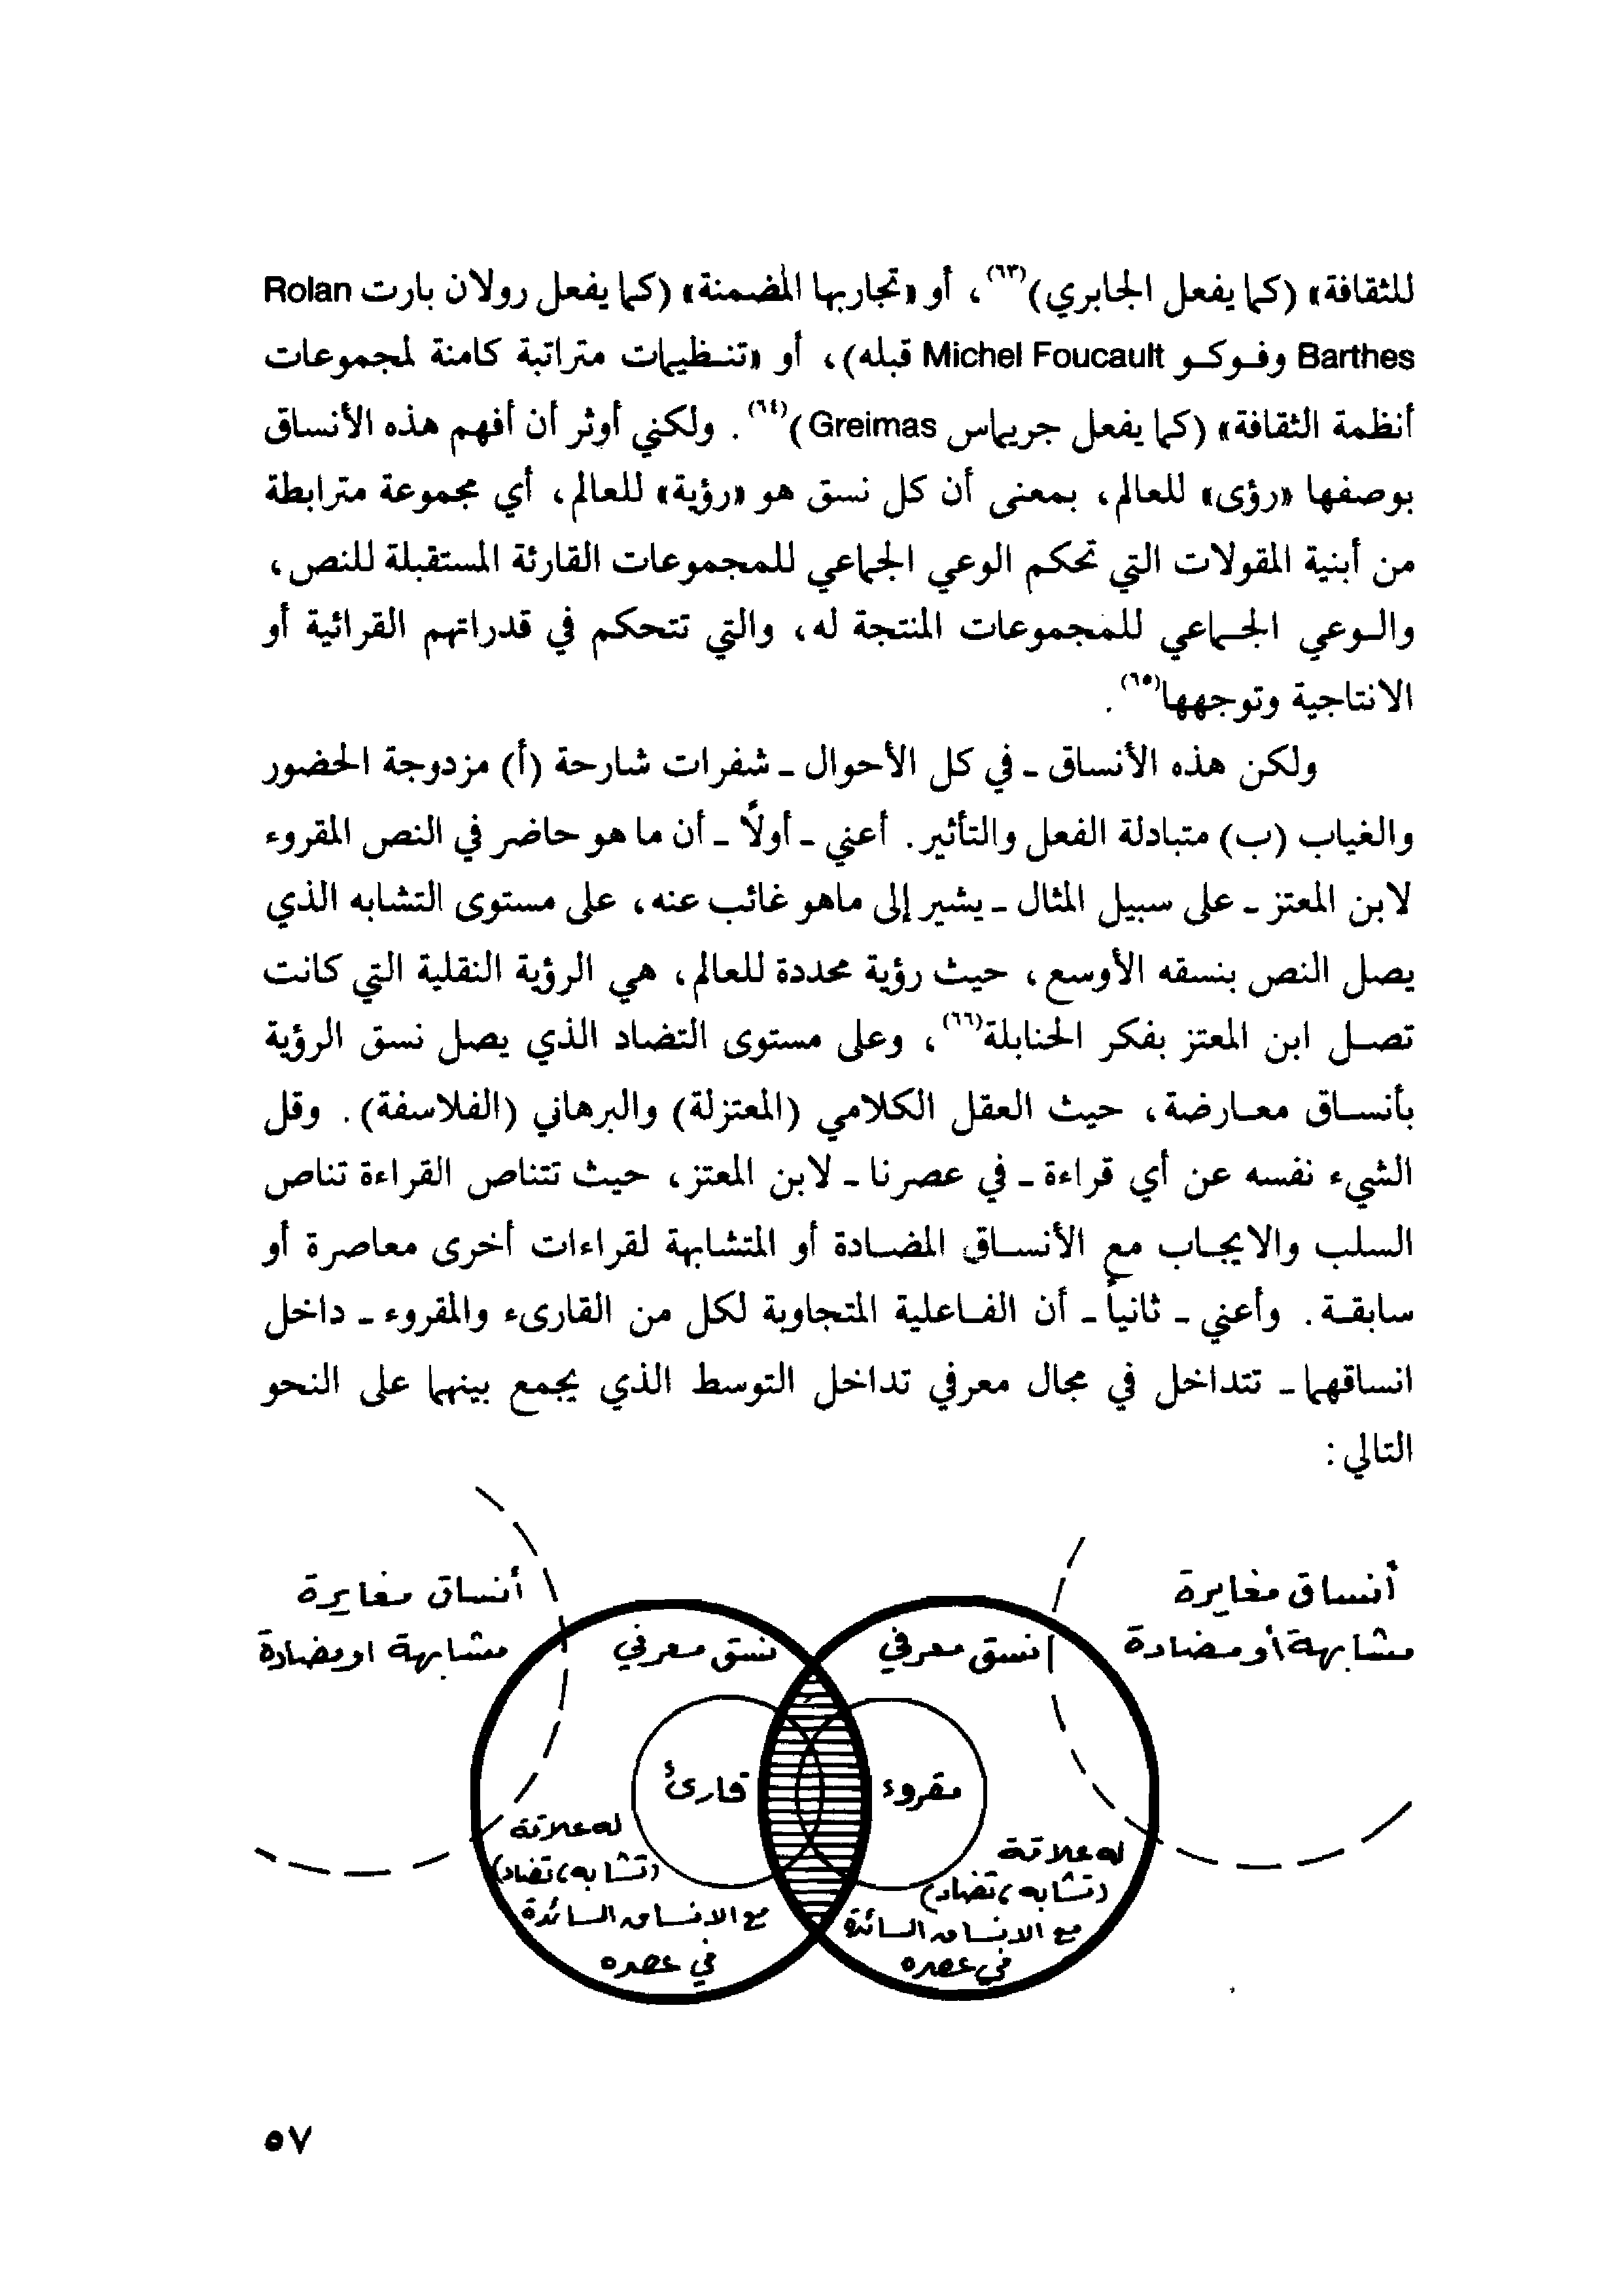 للثقافة» (كما يفعل الجابري)(٦٣)، أو «تجاربها المضمنة» (كما يفعل رولان بارت Rolan
Barthes وفوكو Michel Foucault قبله)، أو «تنظيمات متراتبة كامنة لمجموعات
أنظمة الثقافة» (كما يفعل جريماس Greimas)(٦٤). ولكني أوثر أن أفهم هذه الأنساق
بوصفها «رؤى» للعالم، بمعنى أن كل نسق هو «رؤية» للعالم، أي مجموعة مترابطة
من أبنية المقولات التي تحكم الوعي الجماعي للمجموعات القارئة المستقبلة للنص،
والوعي الجماعي للمجموعات المنتجة له، والتي تتحكم في قدراتهم القرائية أو
الانتاجية وتوجهها(٦٥).
ولكن هذه الأنساق ـ في كل الأحوال ـ شفرات شارحة (أ) مزدوجة الحضور
والغياب (ب) متبادلة الفعل والتأثير. أعني ـ أولاً ـ أن ما هو حاضر في النص المقروء
لابن المعتز ـ على سبيل المثال ـ يشير إلى ماهو غائب عنه، على مستوى التشابه الذي
يصل النص بنسقه الأوسع، حيث رؤية محددة للعالم، هي الرؤية النقلية التي كانت
تصل ابن المعتز بفكر الحنابلة(٦٦)، وعلى مستوى التضاد الذي يصل نسق الرؤية
بأنساق معارضة، حيث العقل الكلامي (المعتزلة) والبرهاني (الفلاسفة). وقل
الشيء نفسه عن أي قراءة ـ في عصرنا ـ لابن المعتز، حيث تتناص القراءة تناص
السلب والايجاب مع الأنساق المضادة أو المتشابهة لقراءات أخرى معاصرة أو
سابقة. وأعني ـ ثانياً ـ أن الفاعلية المتجاوبة لكل من القارىء والمقروء ـ داخل
انساقهما ـ تتداخل في مجال معرفي تداخل التوسط الذي يجمع بينهما على النحو
التالي:
أنساق مغايرة
مشابهة أو مضادة
نسق معرفي
مقروء
له علاقة
(تشابه، تضاد)
مع الانساق السائدة
في عصره
نسق معرفي
قارئ
له علاقة
(تشابه، تضاد)
مع الانساق السائدة
في عصره
أنساق مغايرة
مشابهة او مضادة
٥٧